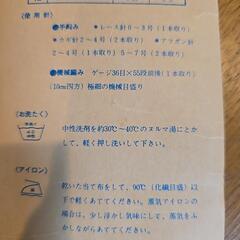 (使用針)
●手編み ★レース針0〜3号(1本取り)
★カギ針2〜4号(2本取り) ★アフガン針
2〜4号(1本取り) 5〜7号(2本取り)
●機械編み ゲージ36目×55段前後(1本取り)
(10cm四方) 極細の機械目盛り
〈お洗たく〉
中性洗剤を約30℃〜40℃のヌルマ湯にとか
して、軽く押し洗いして下さい。
〈アイロン〉
乾いた当て布をして、90℃(化繊目盛)以
下で軽くあててください。蒸気アイロンの
場合は、少し浮かし気味にして、蒸気をふ
かしながらあててください。